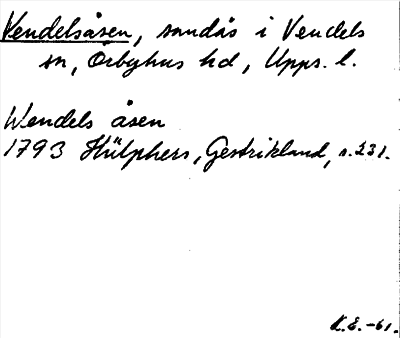 Vendelsåsen, sandås i Vendels
sn, Örbyhus hd, Upps. l.
Wendels åsen
1793 Hülphers, Gestrikland, s. 231.
K.E.-61.